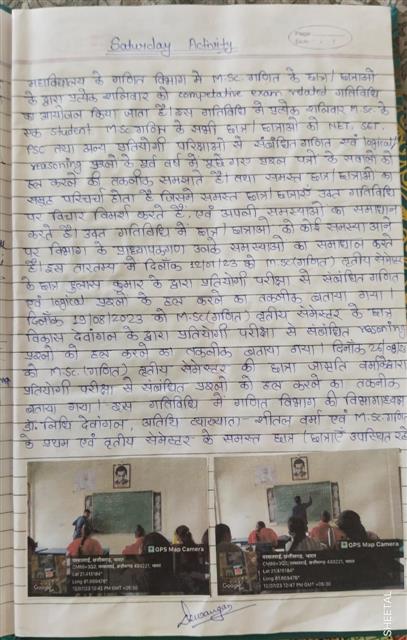 Page
Date
Saturday Activity
महाविद्यालय के गणित विभाग मे M.Sc. गणित के छात्र / छात्राओ
के द्वारा प्रत्येक शनिवार को competative exam related गतिविधि
का आयोजन किया जाता है। इस गतिविधि मे प्रत्येक शनिवार M.Sc. के
एक student M.Sc गणित के सभी छात्र / छात्राओं को NET, SET,
PSC तथा अन्य प्रतियोगी परिक्षाओ से संबंधित गणित एवं logical/
reasoning प्रश्नो के पूर्व वर्ष में पूछे गए प्रश्न पत्रो के सवालो को
हल करने की तकनीक समझाते हैं। तथा समस्त छात्र / छात्राओं का
समूह चर्चा होता है जिसमे समस्त छात्र / छात्राएँ उक्त गतिविधि
पर विचार विमर्श करते है, एवं अपनी समस्याओ का समाधान
करते है। उक्त गतिविधि में छात्र / छात्राओं को कोई समस्या आने
पर विभाग के प्राध्यापकगण उनके समस्याओ का समाधान करते
हैं। इस तारतम्य मे दिनाँक 12/07/23 को M.Sc(गणित) तृतीय सेमेस्टर
के छात्र कुमार के द्वारा प्रतियोगी परीक्षा से संबंधित गणित
एवं logical प्रश्नो के हल करने का तकनीक बताया गया।
दिनाँक 19/08/2023 को M.Sc(गणित) तृतीय सेमेस्टर के छात्र
विकास देवांगन के द्वारा प्रतियोगी परीक्षा से संबंधित reasoning
प्रश्नो को हल करने का तकनीक बताया गया। दिनाँक 26
को M.Sc. (गणित) तृतीय सेमेस्टर की छात्रा जागृति वर्मा के द्वारा
प्रतियोगी परीक्षा से संबंधित प्रश्नो को हल करने का तकनीक
बताया गया। इस गतिविधि मे गणित विभाग की विभागाध्यक्ष
डॉ. निधि देवांगन, अतिथि व्याख्याता - शीतल वर्मा एवं M.Sc. गणित
के प्रथम एवं तृतीय सेमेस्टर के समस्त छात्र / छात्राएँ उपस्थित रहे
GPS Map Camera
छत्तीसगढ़, भारत
छत्तीसगढ़ 493221, भारत
Long 81.669476°
12/07/23 12:43 PM GMT +05:30
Google
GPS Map Camera
छत्तीसगढ़, भारत
छत्तीसगढ़ 493221, भारत
Long 81.669476°
12/07/23 12:47 PM GMT +05:30
Google
Dewangan
SHEETAL